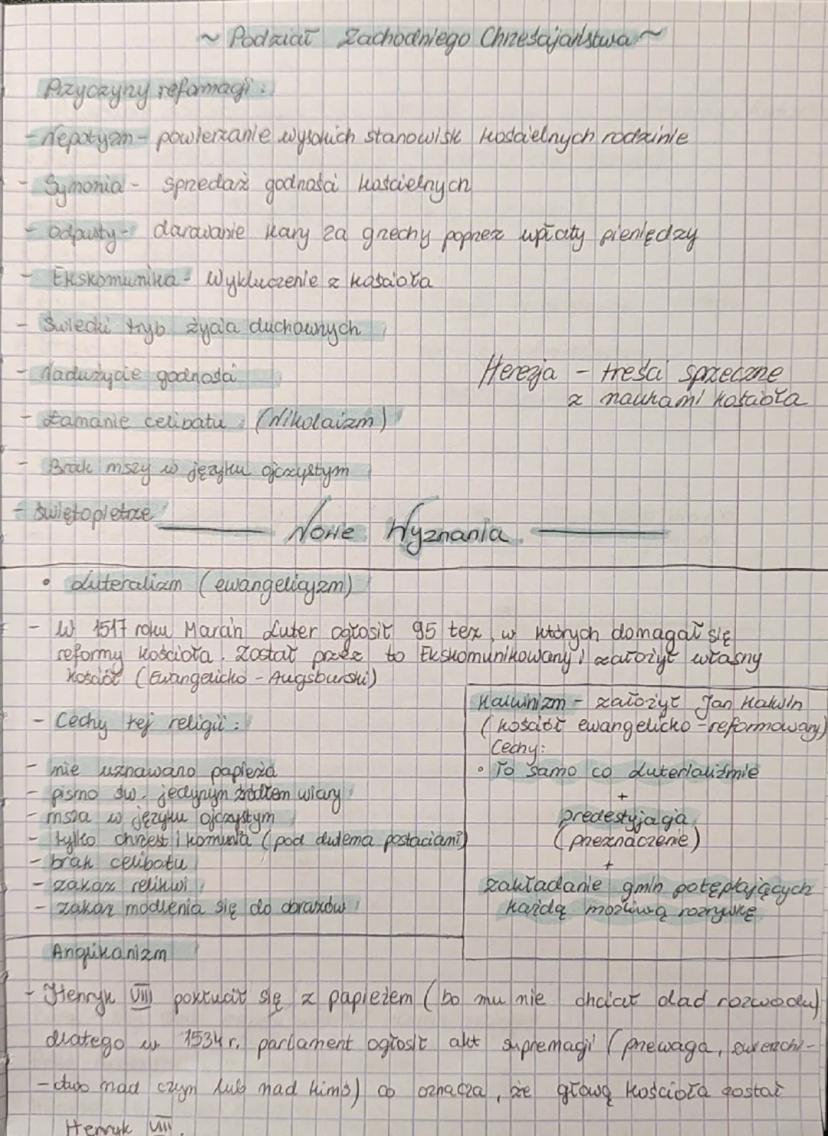 ~ Podział Zachodniego Chrześcijaństwa ~
Przyczyny reformacji:
- Nepotyzm - powierzanie wysokich stanowisk kościelnych rodzinie
- Symonia - sprzedaż godności kościelnych
- Odpusty - darowanie kary za grzechy poprzez wpłaty pieniędzy
- Ekskomunika - Wykluczenie z kościoła
- Świecki tryb życia duchownych
- Nadużycie godności
Herezja - treści sprzeczne
z naukami kościoła
- Łamanie celibatu (Nikolaizm)
- Brak mszy w języku ojczystym
- Świętopietrze
Nowe Wyznania
• Luteralizm (ewangelicyzm)
- W 1517 roku Marcin Luter ogłosił 95 tez, w których domagał się
reformy kościoła. Został przez to Ekskomunikowany i założył własny
kościół (Ewangelicko - Augsburski)
- Cechy tej religii:
- nie uznawano papieża
- pismo św. jedynym źródłem wiary
- msza w języku ojczystym
- tylko chrzest i komunia (pod dwiema postaciami)
- brak celibatu
- zakaz relikwi
- zakaz modlenia się do obrazów
Kalwinizm - założył Jan Kalwin
(kościół ewangelicko-reformowany)
Cechy:
• To samo co Luterializmie
+
predestyjacja
(przeznaczenie)
+
zakładanie gmin potępiających
każdą możliwą rozrywkę
Anglikanizm
- Henryk VIII pokłucił się z papieżem (bo mu nie chciał dać rozwodu)
dlatego w 1534 r. parlament ogłosił akt supremacji (przewaga, zwierzchni-
-ctwo nad czym lub nad kimś) co oznacza, że głową kościoła został
Henryk VIII.